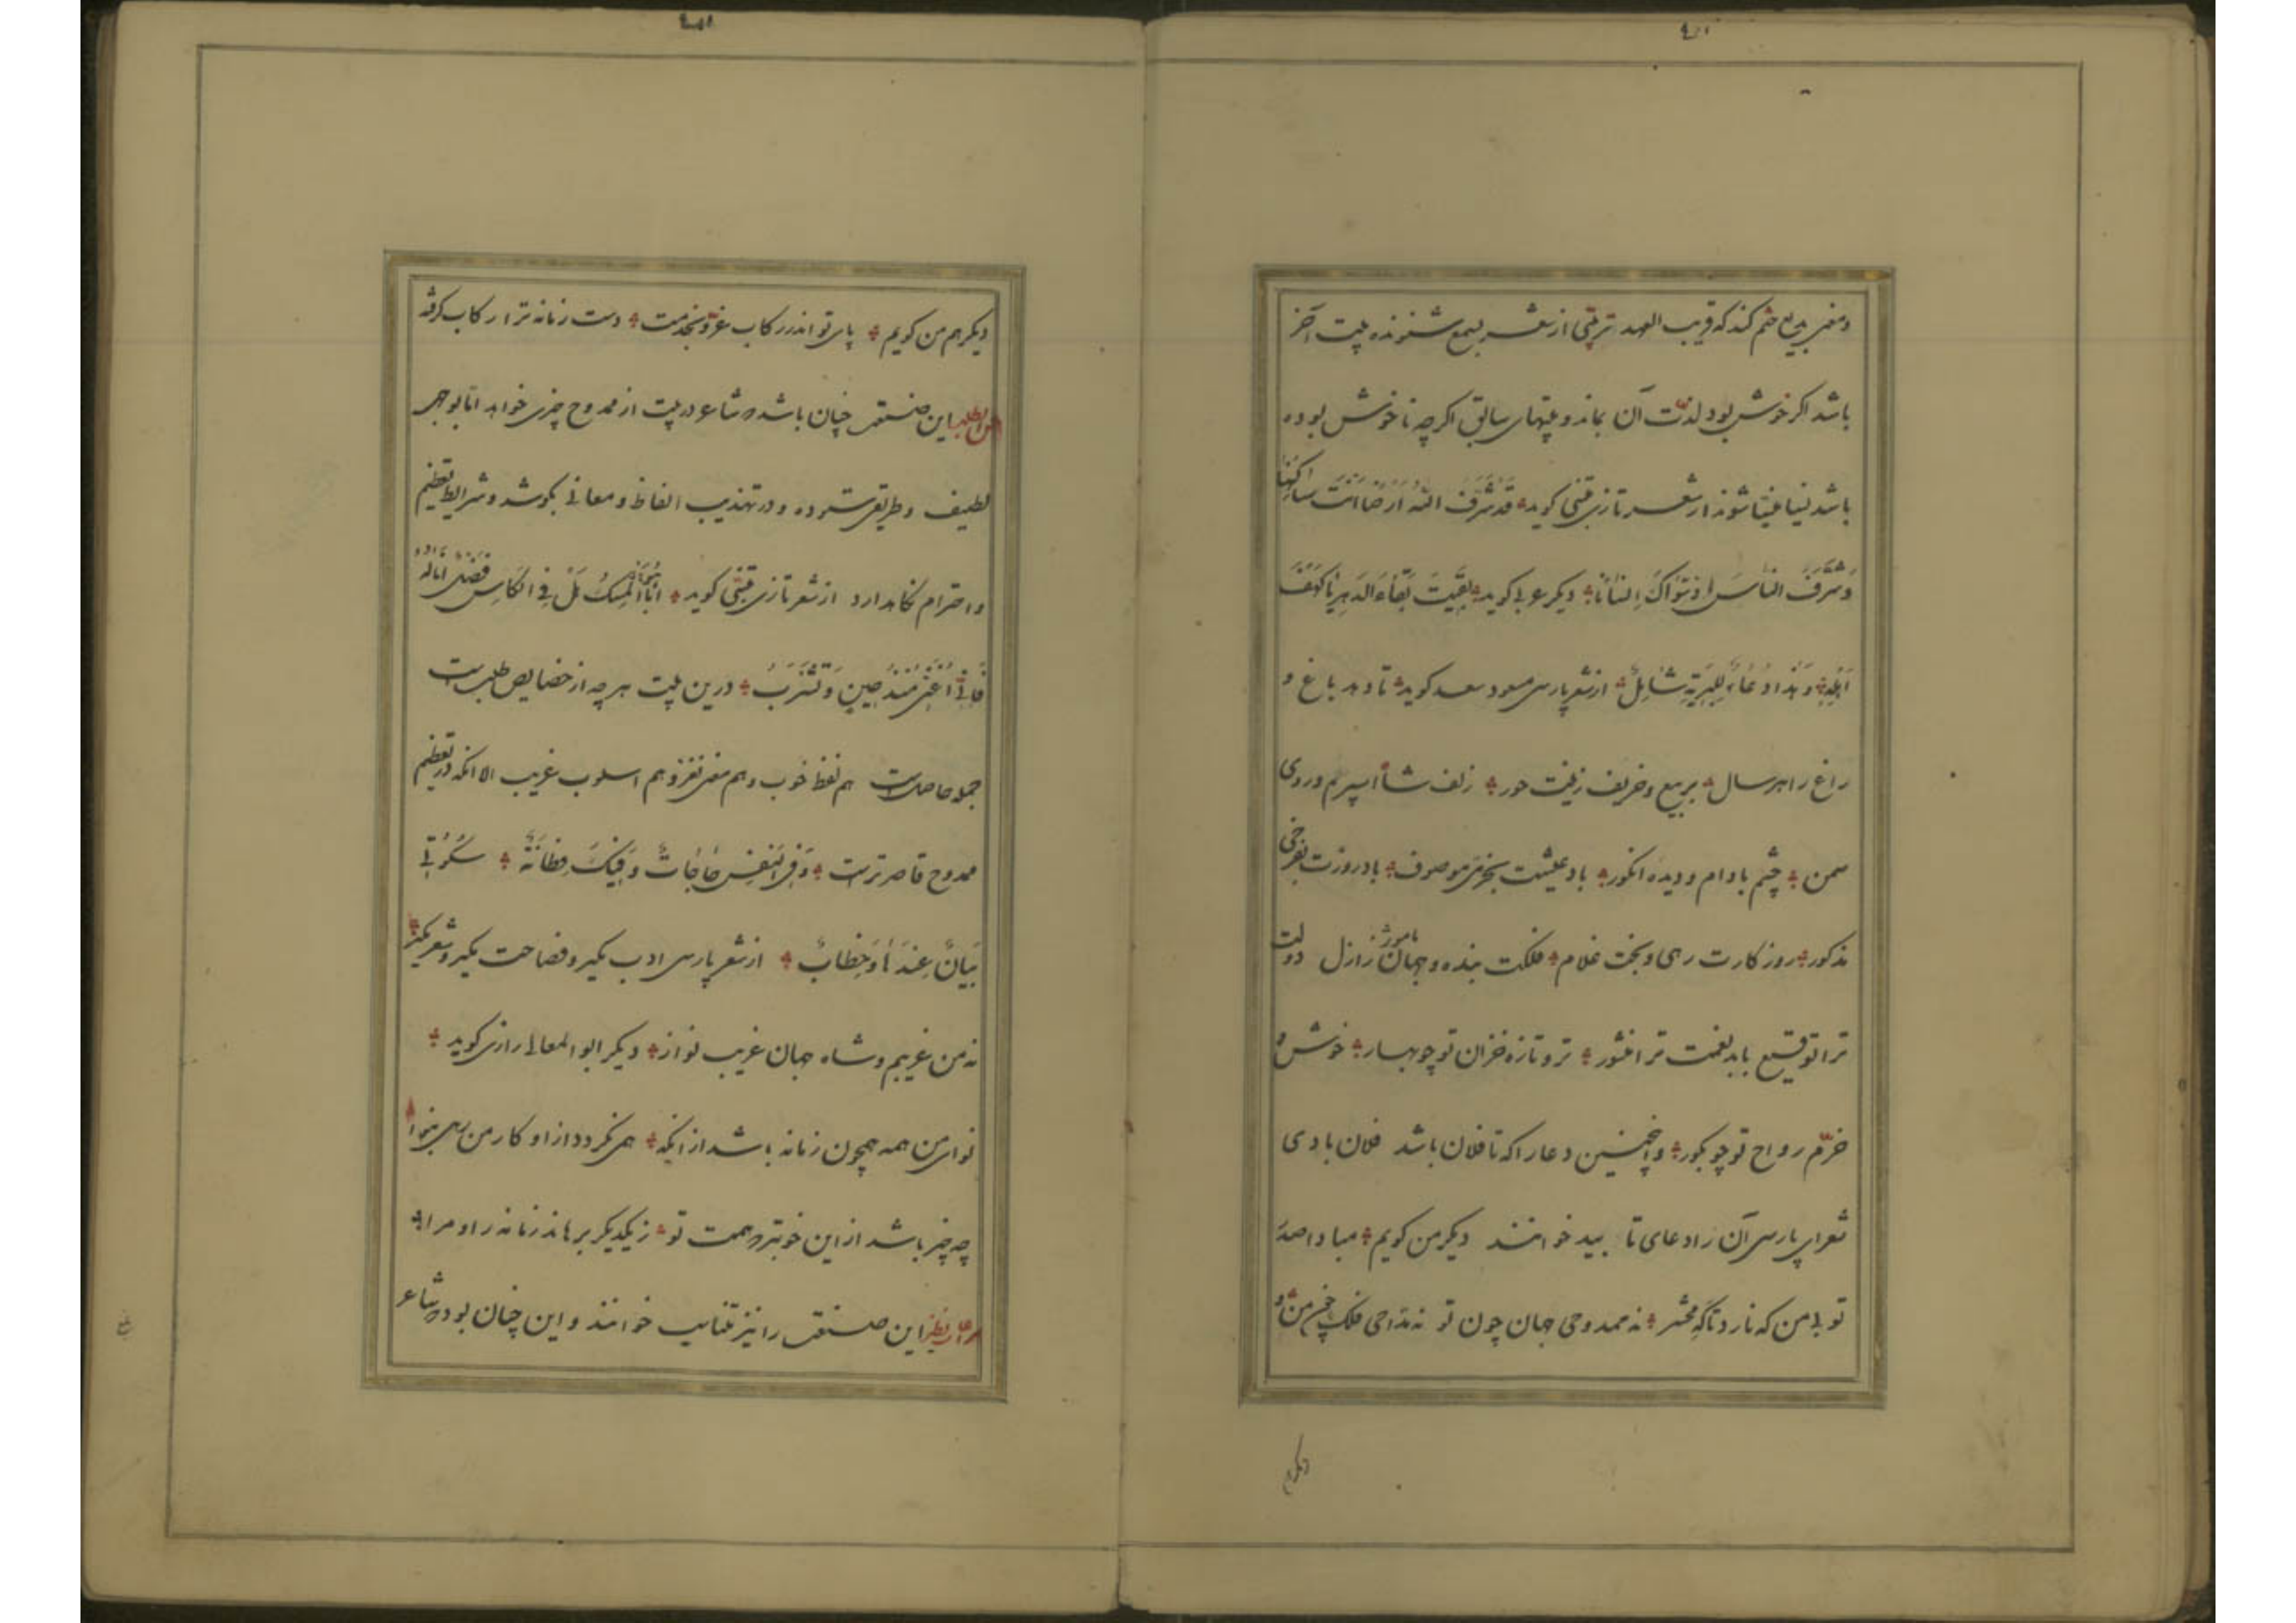 ومعنی بدیع ختم کند که قریب العهد ترتیبی از شعر بسمع شنونده بیت آخر
باشد اگر خوش بود لذّت آن بماند و بیتهای سابق اگرچه ناخوش بوده
باشد نسیاً منسیا شوند از شعر تازی متنبی گوید قَدْ شَرَّفَ اللهُ اَرْضًا اَنْتَ سَاکِنُهَا
وَشَرَّفَ النَّاسَ اِذْ سَوَّاکَ اِنْسَانًا دیگر عربی گوید بَقِیتَ بَقَاءَ الدَّهْرِ یَا کَهْفَ
اَهْلِهِ وَهٰذَا دُعَاءٌ لِلْبَرِیَّةِ شَامِلٌ از شعر پارسی مسعود سعد گوید تا دهد باغ و
راغ را هر سال بربیع و خریف زینت حور زلف شاه اسپرم و روی
سمن چشم بادام و دیده انگور باد عیشت بخرمی موصوف باد روزت بفرخی
مذکور روزگارت رهی و بخت غلام فلکت بنده و جهان مامور از ازل دولت
ترا توقیع بابد نعمت ترا منشور تر و تازه خزان تو چو بهار خوش و
خرّم رواح تو چو بکور و اینچنین دعا را که تا فلان باشد فلان بادی
شعرای پارسی آن را دعای تا بید خوانند دیگر من گویم مبادا صدر
تو بی من که نارد تا گه محشر نه ممدوحی جهان چون تو نه مدّاحی فلک چون من
دیگر هم
دیگر هم من گویم پای تو اندر رکاب عزّ و بخدمت دست زمانه ترا رکاب گرفته
حسن الطلب این صنعتی چنان باشد که شاعر در بیت از ممدوح چیزی خواهد اما بوجهی
لطیف و طریقی ستوده و در تهذیب الفاظ و معانی بکوشد و شرایط تعظیم
و احترام نگاه دارد از شعر تازی متنبی گوید اَبَا الْمِسْکِ هَلْ فِی الْکَاسِ فَضْلٌ اَنَالُهُ
فَاِنِّی اُغَنِّی مُنْذُ حِینٍ وَتَشْرَبُ درین بیت هر چه از خصایص طلب است
جمله حاصل است هم لفظ خوب و هم معنی نغز و هم اسلوب غریب الا آنکه در تعظیم
ممدوح قاصر ترست وَفِی النَّفْسِ حَاجَاتٌ وَفِیکَ فِطَانَةٌ سُکُوتِی
بَیَانٌ عِنْدَهَا وَخِطَابٌ از شعر پارسی ادب مگیر و فصاحت مگیر و شعر مگیر
نه من غریبم و شاه جهان غریب نواز دیگر ابوالمعالی رازی گوید
نوای من همه همچون زمانه باشد از آنکه همی نگردد از او کار من رهی بنوا
چه چیز باشد از این خوبتر که همت تو ز یکدیگر برهاند زمانه را و مرا
مراعاة النظیر این صنعتی را نیز متناسب خوانند و این چنان بود که شاعر